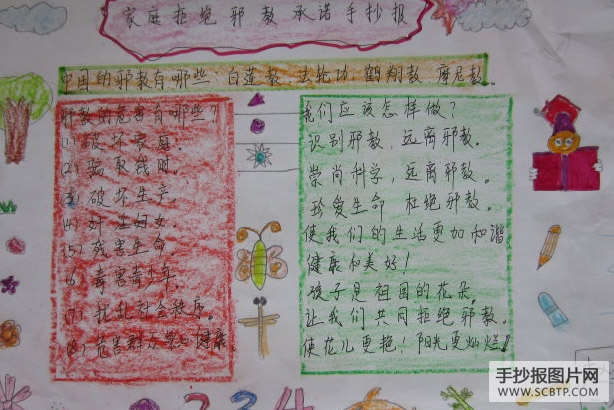 家庭拒绝邪教承诺手抄报
中国的邪教有哪些:白莲教 法轮功 鹤翔教 摩尼教.
邪教的危害有哪些?
(1)破坏家庭.
(2)骗取钱财.
(3)破坏生产.
(4)奸主妇女.
(5)残害生命
(6)毒害青少年.
(7)扰乱社会秩序.
(8)危害群众身心健康
我们应该怎样做?
识别邪教,远离邪教.
崇尚科学,远离邪教.
珍爱生命 杜绝邪教.
使我们的生活更加和谐
健康和美好!
孩子是祖国的花朵,
让我们共同拒绝邪教.
使花儿更艳!阳光更灿烂!
234
手抄报图片网
WWW.SCBTP.COM